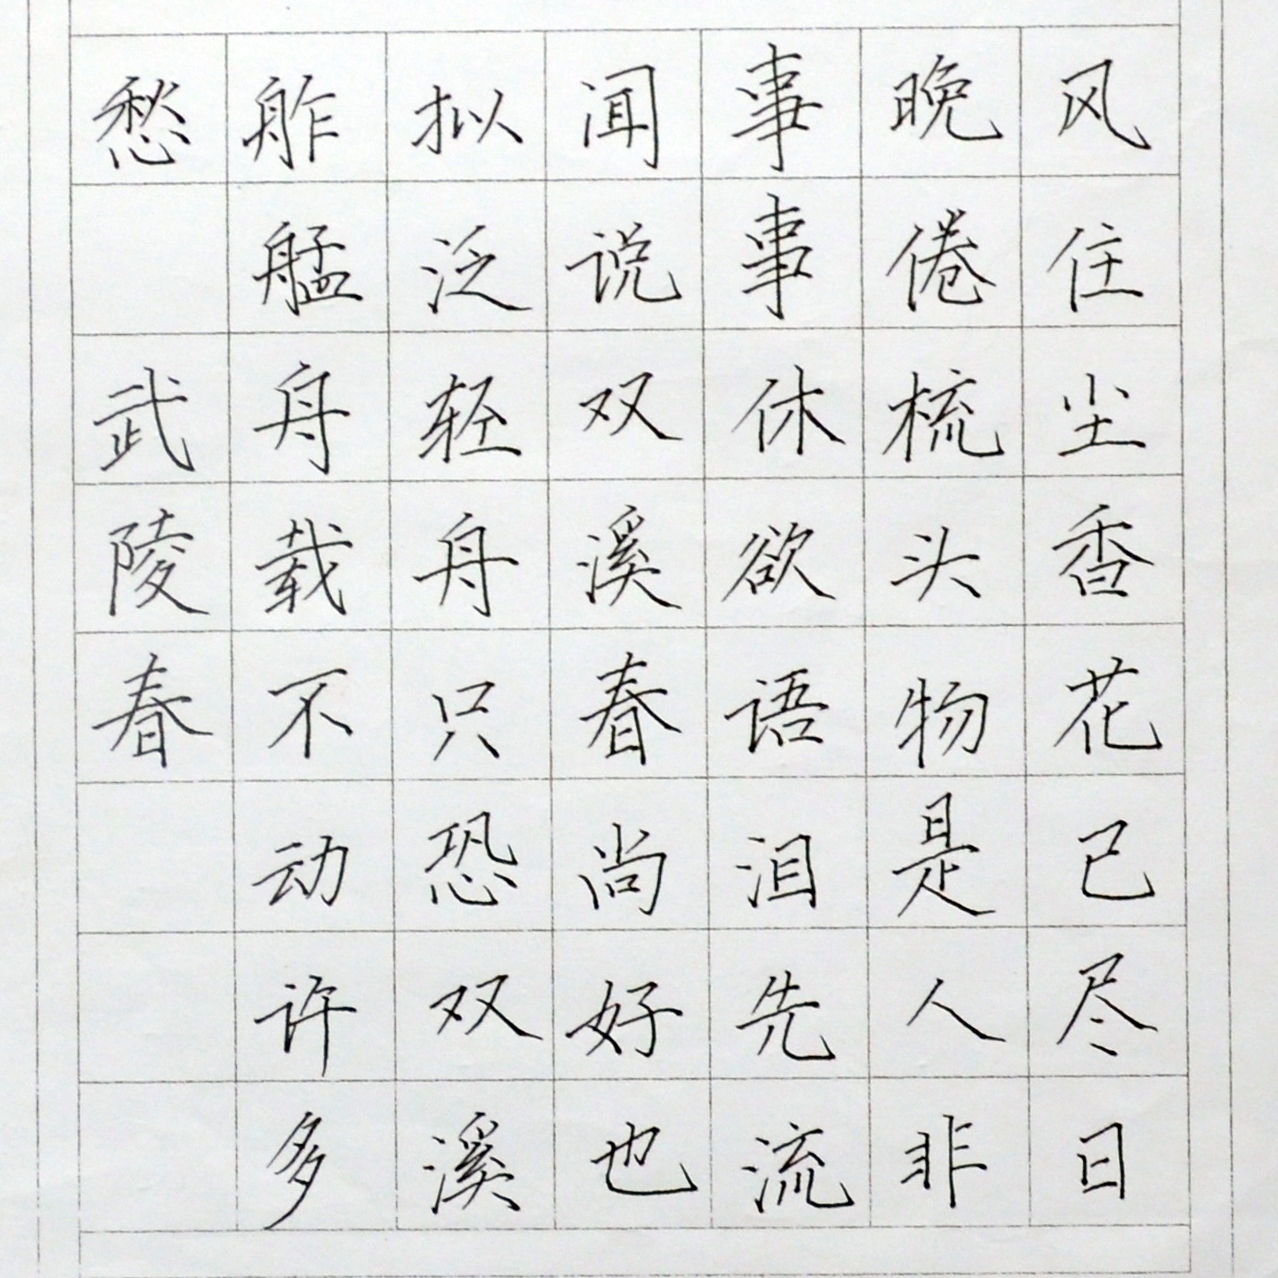 风住尘香花已尽日
晚倦梳头物是人非
事事休欲语泪先流
闻说双溪春尚好也
拟泛轻舟只恐双溪
舴艋舟载不动许多
愁 武陵春